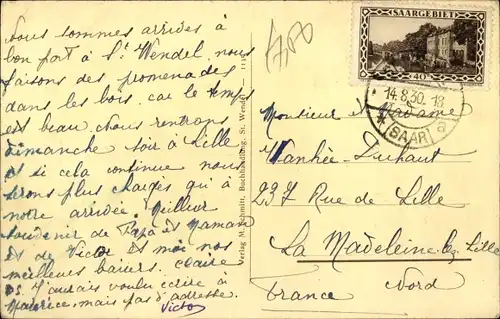 Nous sommes arrivés à
bon port à St Wendel nous
faisons des promenades
dans les bois, car le temps
est beau. Nous rentrons
dimanche soir à Lille
et si cela continue nous
serons plus chargés qu'à
notre arrivée. Meilleur
souvenir de Papa et Maman
et de Victor et moi nos
meilleurs baisers. Claire
PS. J'aurais voulu écrire à
Maurice, mais pas d'adresse.
Victor
Verlag M. Schmitt, Buchhandlung, St. Wendel
SAARGEBIET
40
14.8.30. 18
(SAAR) a
Monsieur et Madame
Vanhée-Duhaut
237 Rue de Lille
La Madeleine lez Lille
Nord
France